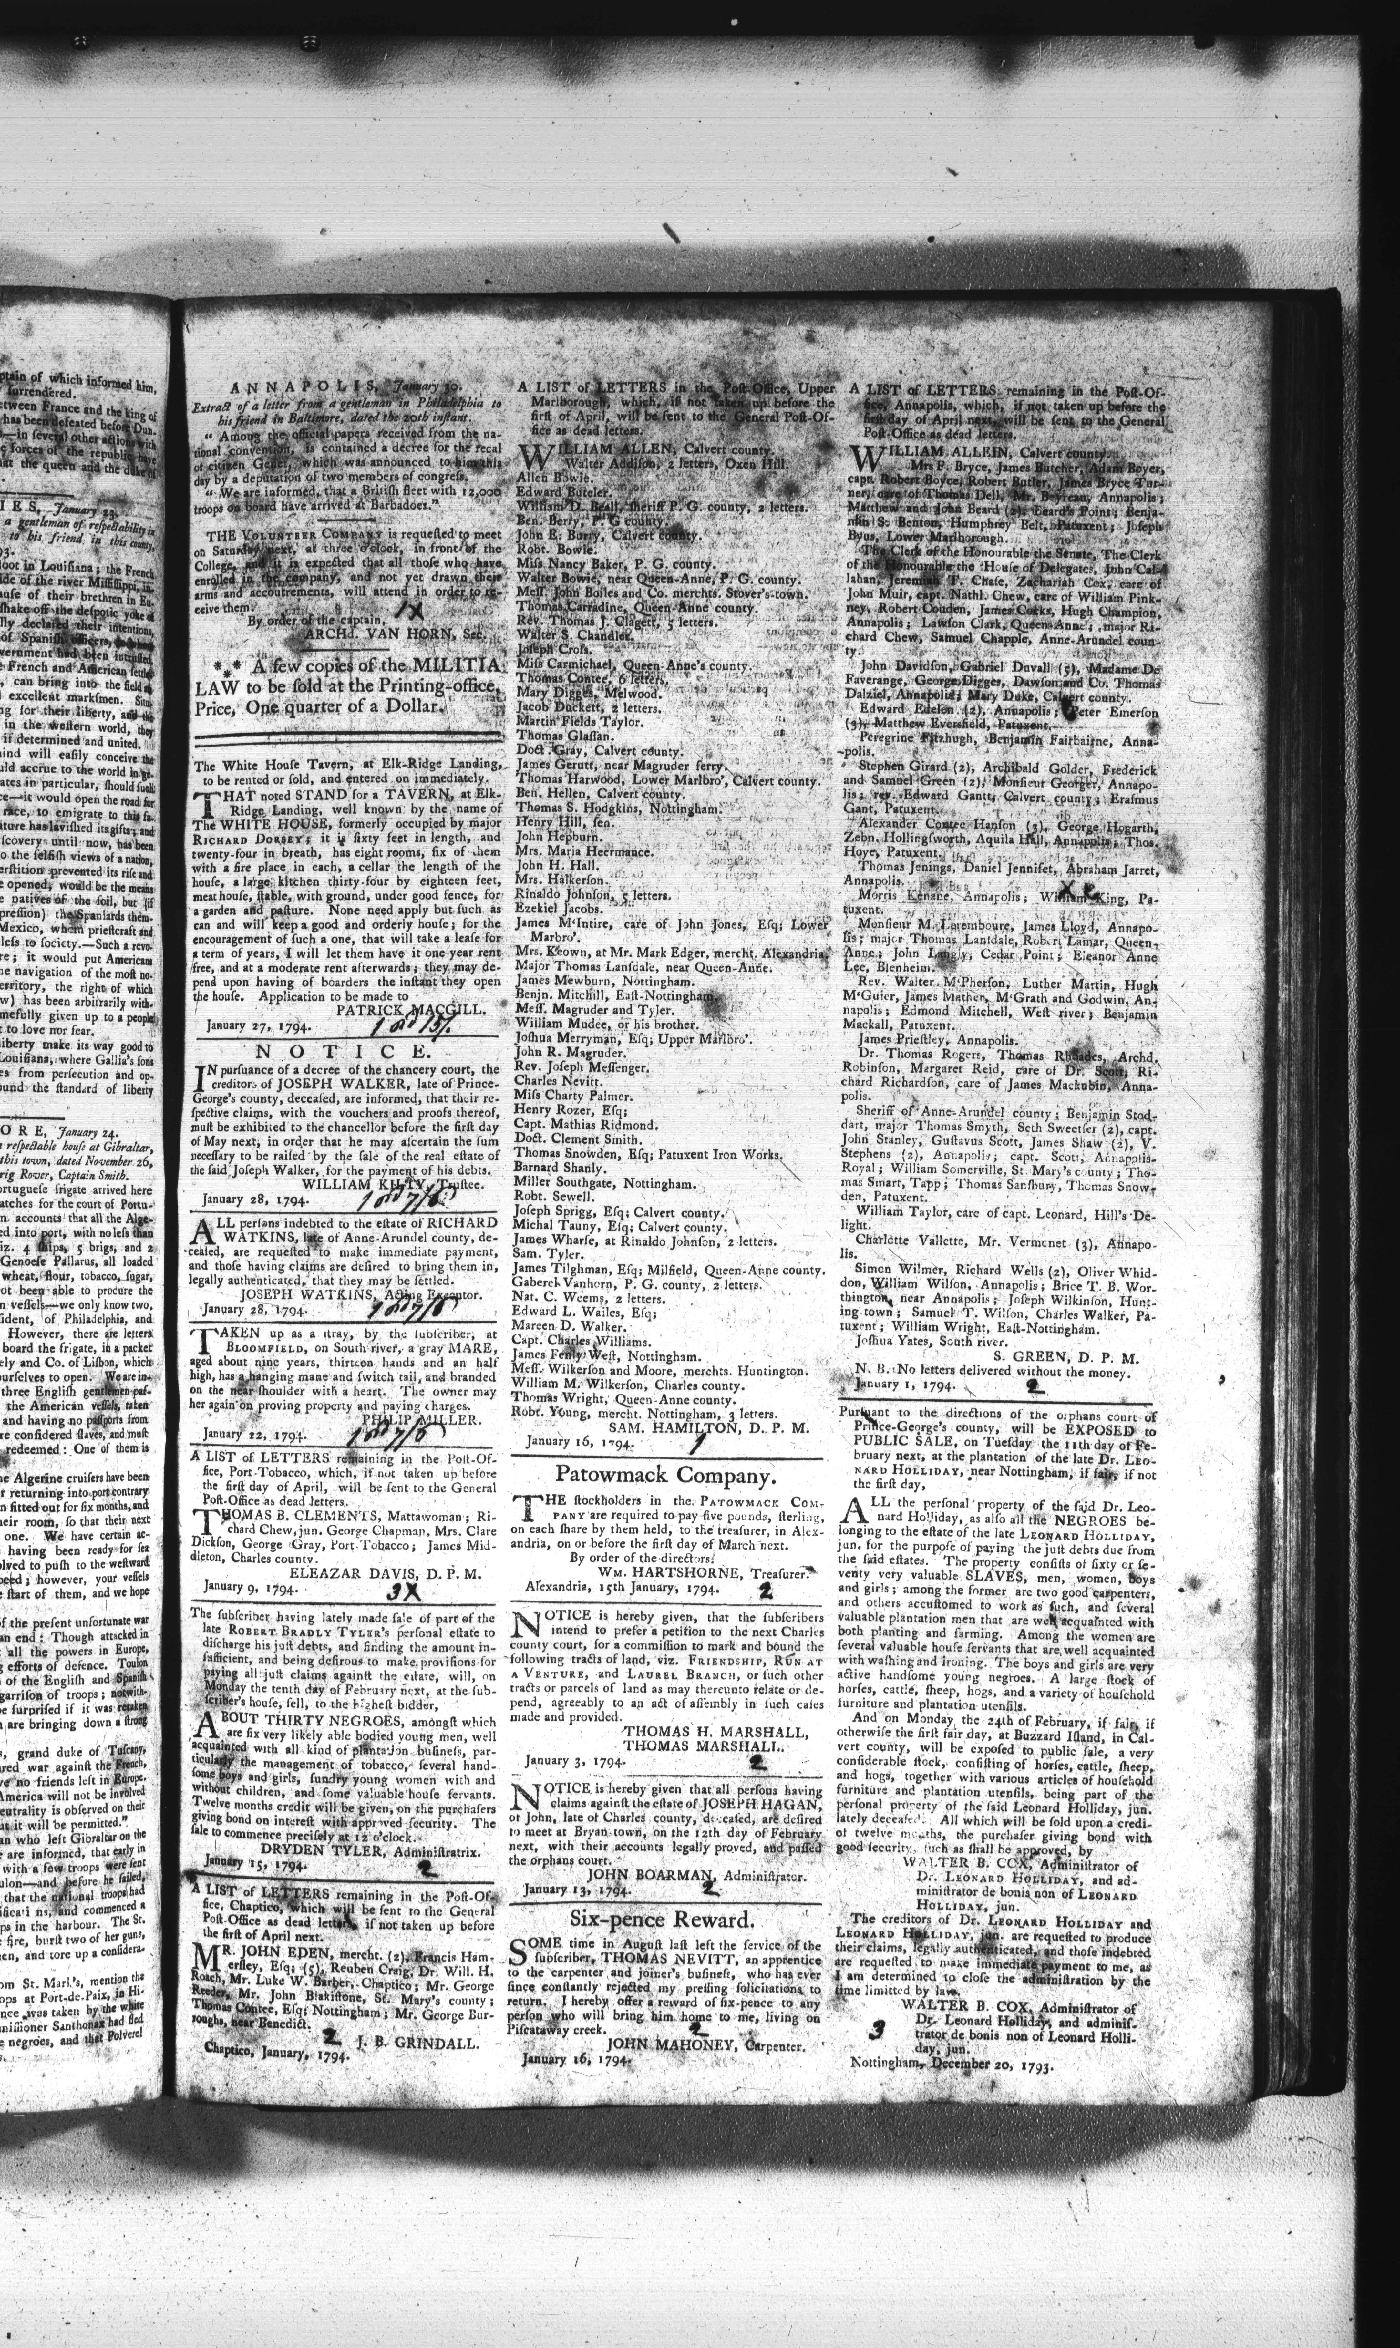 ptain of which informed him,
surrendered.
etween France and the king of
has been defeated before Dun-
—in several other actions with
e forces of the republic have
at the queen and the duke of
IES, January 23.
a gentleman of respectability in
to his friend in this county,
93.
foot in Louisiana; the French
ide of the river Mississippi, in
ause of their brethren in Eu-
shake off the despotic yoke of
lly declared their intentions,
of Spanish officers,
vernment had been intrusted
e French and American settle
, can bring into the field
l excellent marksmen. Situ
ng for their liberty, and the
in the western world, they
if determined and united.
mind will easily conceive the
uld accrue to the world in ge-
ates in particular, should such
ce—it would open the road for
race, to emigrate to this fa-
ature has lavished its gifts; and
scovery until now, has been
o the selfish views of a nation,
erstition prevented its rise and
e opened, would be the means
e natives of the soil, but (if
pression) the Spaniards them-
Mexico, whom priestcraft and
less to society.—Such a revo-
re; it would put American
he navigation of the most no-
erritory, the right of which
w) has been arbitrarily with-
mefully given up to a people
t to love nor fear.
liberty make its way good to
Louisiana, where Gallia's sons
es from persecution and op-
ound the standard of liberty
ORE, January 24.
a respectable house at Gibraltar,
this town, dated November 26,
rig Rover, Captain Smith.
ortuguese frigate arrived here
atches for the court of Portu-
n accounts that all the Alge-
ed into port, with no less than
iz. 4 ships, 5 brigs, and 2
Genoese Pallarus, all loaded
wheat, flour, tobacco, sugar,
ot been able to procure the
n vessels—we only know two,
sident, of Philadelphia, and
However, there are letters
board the frigate, in a packet
ely and Co. of Lisbon, which
ourselves to open. We are in-
three English gentlemen pas-
the American vessels, taken
and having no passports from
re considered slaves, and must
redeemed: One of them is
he Algerine cruisers have been
r returning into port contrary
n fitted out for six months, and
heir room, so that their next
one. We have certain ac-
having been ready for sea
olved to push to the westward
peed; however, your vessels
e start of them, and we hope
of the present unfortunate war
an end: Though attacked in
all the powers in Europe,
g efforts of defence. Toulon
n of the English and Spanish
garrison of troops; notwith-
be surprised if it was retaken
are bringing down a strong
, grand duke of Tuscany,
red war against the French,
ve no friends left in Europe,
America will not be involved
eutrality is observed on their
ut it will be permitted."
an who left Gibraltar on the
e are informed, that early in
with a few troops were sent
ulon—and before he sailed,
that the national troops had
ificati ns, and commenced a
ps in the harbour. The St.
fire, burst two of her guns,
en, and tore up a considera-
om St. Marl's, mention the
ops at Port-de-Paix, in Hi-
nce was taken by the white
missioner Santhonax had fled
e negroes, and that Polverel
ANNAPOLIS, January 30.
Extract of a letter from a gentleman in Philadelphia to
his friend in Baltimore, dated the 20th instant.
" Among the official papers received from the na-
tional convention, is contained a decree for the recal
of citizen Genet, which was announced to him this
day by a deputation of two members of congress.
" We are informed, that a British fleet with 12,000
troops on board have arrived at Barbadoes."
THE VOLUNTEER COMPANY is requested to meet
on Saturday next, at three o'clock, in front of the
College, and it is expected that all those who have
enrolled in the company, and not yet drawn their
arms and accoutrements, will attend in order to re-
ceive them.
1X
By order of the captain,
ARCHd. VAN HORN, Sec.
*** A few copies of the MILITIA
LAW to be sold at the Printing-office,
Price, One quarter of a Dollar.
The White House Tavern, at Elk-Ridge Landing,
to be rented or sold, and entered on immediately.
THAT noted STAND for a TAVERN, at Elk-
Ridge Landing, well known by the name of
The WHITE HOUSE, formerly occupied by major
RICHARD DORSEY; it is sixty feet in length, and
twenty-four in breath, has eight rooms, six of them
with a fire place in each, a cellar the length of the
house, a large kitchen thirty-four by eighteen feet,
meat house, stable, with ground, under good fence, for
a garden and pasture. None need apply but such as
can and will keep a good and orderly house; for the
encouragement of such a one, that will take a lease for
a term of years, I will let them have it one year rent
free, and at a moderate rent afterwards; they may de-
pend upon having of boarders the instant they open
the house. Application to be made to
PATRICK MACGILL.
January 27, 1794.
NOTICE.
IN pursuance of a decree of the chancery court, the
creditors of JOSEPH WALKER, late of Prince-
George's county, deceased, are informed, that their re-
spective claims, with the vouchers and proofs thereof,
must be exhibited to the chancellor before the first day
of May next, in order that he may ascertain the sum
necessary to be raised by the sale of the real estate of
the said Joseph Walker, for the payment of his debts.
WILLIAM KILTY, Trustee.
January 28, 1794.
ALL persons indebted to the estate of RICHARD
WATKINS, late of Anne-Arundel county, de-
ceased, are requested to make immediate payment,
and those having claims are desired to bring them in,
legally authenticated, that they may be settled.
JOSEPH WATKINS, Acting Executor.
January 28, 1794.
TAKEN up as a stray, by the subscriber, at
BLOOMFIELD, on South river, a gray MARE,
aged about nine years, thirteen hands and an half
high, has a hanging mane and switch tail, and branded
on the near shoulder with a heart. The owner may
her again on proving property and paying charges.
PHILIP MILLER.
January 22, 1794.
A LIST of LETTERS remaining in the Post-Of-
fice, Port-Tobacco, which, if not taken up before
the first day of April, will be sent to the General
Post-Office as dead letters.
THOMAS B. CLEMENTS, Mattawoman; Ri-
chard Chew, jun. George Chapman, Mrs. Clare
Dickson, George Gray, Port Tobacco; James Mid-
dleton, Charles county.
ELEAZAR DAVIS, D. P. M.
January 9, 1794. 3X
The subscriber having lately made sale of part of the
late ROBERT BRADLY TYLER's personal estate to
discharge his just debts, and finding the amount in-
sufficient, and being desirous to make provisions for
paying all just claims against the estate, will, on
Monday the tenth day of February next, at the sub-
scriber's house, sell, to the highest bidder,
ABOUT THIRTY NEGROES, amongst which
are six very likely able bodied young men, well
acquainted with all kind of plantation business, par-
ticularly the management of tobacco, several hand-
some boys and girls, sundry young women with and
without children, and some valuable house servants.
Twelve months credit will be given, on the purchasers
giving bond on interest with approved security. The
sale to commence precisely at 12 o'clock.
DRYDEN TYLER, Administratrix.
January 15, 1794. 2
A LIST of LETTERS remaining in the Post-Of-
fice, Chaptico, which will be sent to the General
Post-Office as dead letters, if not taken up before
the first of April next.
MR. JOHN EDEN, mercht. (2), Francis Ham-
ersley, Esq; (5), Reuben Craig, Dr. Will. H.
Roach, Mr. Luke W. Barber, Chaptico; Mr. George
Reeder, Mr. John Blakistone, St. Mary's county;
Thomas Contee, Esq; Nottingham; Mr. George Bur-
roughs, near Benedict.
2 J. B. GRINDALL.
Chaptico, January, 1794.
A LIST of LETTERS in the Post-Office, Upper
Marlborough, which, if not taken up before the
first of April, will be sent to the General Post-Of-
fice as dead letters.
WILLIAM ALLEN, Calvert county.
Walter Addison, 2 letters, Oxen Hill.
Allen Bowie.
Edward Buteler.
William D. Beall, sheriff P. G. county, 2 letters.
Ben. Berry, P. G county.
John E. Burry, Calvert county.
Robt. Bowie.
Miss Nancy Baker, P. G. county.
Walter Bowie, near Queen-Anne, P. G. county.
Mess. John Bolles and Co. merchts. Stover's-town.
Thomas Carradine, Queen-Anne county.
Rev. Thomas J. Clagett, 5 letters.
Walter S. Chandler.
Joseph Cross.
Miss Carmichael, Queen-Anne's county.
Thomas Contee, 6 letters.
Mary Digges, Melwood.
Jacob Duckett, 2 letters.
Martin Fields Taylor.
Thomas Glassan.
Doct. Gray, Calvert county.
James Gerutt, near Magruder ferry.
Thomas Harwood, Lower Marlbro', Calvert county.
Ben. Hellen, Calvert county.
Thomas S. Hodgkins, Nottingham.
Henry Hill, sen.
John Hepburn.
Mrs. Maria Heermance.
John H. Hall.
Mrs. Halkerson.
Rinaldo Johnson, 5 letters.
Ezekiel Jacobs.
James M'Intire, care of John Jones, Esq; Lower
Marbro'.
Mrs. Keown, at Mr. Mark Edger, mercht. Alexandria.
Major Thomas Lansdale, near Queen-Anne.
James Mewburn, Nottingham.
Benjn. Mitchill, East-Nottingham.
Mess. Magruder and Tyler.
William Mudee, or his brother.
Joshua Merryman, Esq; Upper Marlbro'.
John R. Magruder.
Rev. Joseph Messenger.
Charles Nevitt.
Miss Charty Palmer.
Henry Rozer, Esq;
Capt. Mathias Ridmond.
Doct. Clement Smith.
Thomas Snowden, Esq; Patuxent Iron Works.
Barnard Shanly.
Miller Southgate, Nottingham.
Robt. Sewell.
Joseph Sprigg, Esq; Calvert county.
Michal Tauny, Esq; Calvert county.
James Wharfe, at Rinaldo Johnson, 2 letters.
Sam. Tyler.
James Tilghman, Esq; Milfield, Queen-Anne county.
Gaberck Vanhorn, P. G. county, 2 letters.
Nat. C. Weems, 2 letters.
Edward L. Wailes, Esq;
Mareen D. Walker.
Capt. Charles Williams.
James Fenly West, Nottingham.
Mess. Wilkerson and Moore, merchts. Huntington.
William M. Wilkerson, Charles county.
Thomas Wright, Queen-Anne county.
Robt. Young, mercht. Nottingham, 3 letters.
SAM. HAMILTON, D. P. M.
January 16, 1794. 1
Patowmack Company.
THE stockholders in the PATOWMACK COM-
PANY are required to pay five pounds, sterling,
on each share by them held, to the treasurer, in Alex-
andria, on or before the first day of March next.
By order of the directors,
WM. HARTSHORNE, Treasurer.
Alexandria, 15th January, 1794. 2
NOTICE is hereby given, that the subscribers
intend to prefer a petition to the next Charles
county court, for a commission to mark and bound the
following tracts of land, viz. FRIENDSHIP, RUN AT
A VENTURE, and LAUREL BRANCH, or such other
tracts or parcels of land as may thereunto relate or de-
pend, agreeably to an act of assembly in such cases
made and provided.
THOMAS H. MARSHALL,
THOMAS MARSHALL.
January 3, 1794. 2
NOTICE is hereby given that all persons having
claims against the estate of JOSEPH HAGAN,
of John, late of Charles county, deceased, are desired
to meet at Bryan-town, on the 12th day of February
next, with their accounts legally proved, and passed
the orphans court.
JOHN BOARMAN, Administrator.
January 13, 1794. 2
Six-pence Reward.
SOME time in August last left the service of the
subscriber, THOMAS NEVITT, an apprentice
to the carpenter and joiner's business, who has ever
since constantly rejected my pressing solicitations to
return. I hereby offer a reward of six-pence to any
person who will bring him home to me, living on
Piscataway creek. 2
JOHN MAHONEY, Carpenter.
January 16, 1794.
A LIST of LETTERS remaining in the Post-Of-
fice, Annapolis, which, if not taken up before the
first day of April next, will be sent to the General
Post-Office as dead letters.
WILLIAM ALLEIN, Calvert county.
Mrs F. Bryce, James Butcher, Adam Boyer,
capt. Robert Boyce, Robert Butler, James Bryce Tur-
ner, care of Thomas Dell, Mr. Beyreau, Annapolis;
Matthew and John Beard (2), Beard's Point; Benja-
min S. Benton, Humphrey Belt, Patuxent; Joseph
Byus, Lower Marlborough.
The Clerk of the Honourable the Senate, The Clerk
of the Honourable the House of Delegates, John Cal-
lahan, Jeremiah T. Chase, Zachariah Cox, care of
John Muir, capt. Nathl. Chew, care of William Pink-
ney, Robert Couden, James Corks, Hugh Champion,
Annapolis; Lawson Clark, Queen-Anne; major Ri-
chard Chew, Samuel Chapple, Anne-Arundel coun-
ty.
John Davidson, Gabriel Duvall (5), Madame De
Faverange, George Digger, Dawson and Co. Thomas
Dalziel, Annapolis; Mary Duke, Calvert county.
Edward Edelen (2), Annapolis; Peter Emerson
(3), Matthew Eversfield, Patuxent.
Peregrine Fitzhugh, Benjamin Fairbairne, Anna-
polis.
Stephen Girard (2), Archibald Golder, Frederick
and Samuel Green (2), Monsieur Georger, Annapo-
lis; rev. Edward Gantt, Calvert county; Erasmus
Gant, Patuxent.
Alexander Contee Hanson (3), George Hogarth,
Zebn. Hollingsworth, Aquila Hall, Annapolis; Thos.
Hoye, Patuxent.
Thomas Jenings, Daniel Jennifer, Abraham Jarret,
Annapolis.
Morris Kenane, Annapolis; William King, Pa-
tuxent.
Monsieur M. Laremboure, James Lloyd, Annapo-
lis; major Thomas Lansdale, Robert Lamar, Queen-
Anne; John Langly, Cedar Point; Eleanor Anne
Lee, Blenheim.
Rev. Walter M'Pherson, Luther Martin, Hugh
M'Guier, James Mather, M'Grath and Godwin, An-
napolis; Edmond Mitchell, West river; Benjamin
Mackall, Patuxent.
James Priestley, Annapolis.
Dr. Thomas Rogers, Thomas Rhoades, Archd.
Robinson, Margaret Reid, care of Dr. Scott, Ri-
chard Richardson, care of James Mackubin, Anna-
polis.
Sheriff of Anne-Arundel county; Benjamin Stod-
dart, major Thomas Smyth, Seth Sweetser (2), capt.
John Stanley, Gustavus Scott, James Shaw (2), V.
Stephens (2), Annapolis; capt. Scott, Annapolis-
Royal; William Somerville, St. Mary's county; Tho-
mas Smart, Tapp; Thomas Sansbury, Thomas Snow-
den, Patuxent.
William Taylor, care of capt. Leonard, Hill's De-
light.
Charlotte Vallette, Mr. Vermonet (3), Annapo-
lis.
Simon Wilmer, Richard Wells (2), Oliver Whid-
don, William Wilson, Annapolis; Brice T. B. Wor-
thington, near Annapolis; Joseph Wilkinson, Hunt-
ing town; Samuel T. Wilson, Charles Walker, Pa-
tuxent; William Wright, East-Nottingham.
Joshua Yates, South river.
S. GREEN, D. P. M.
N. B. No letters delivered without the money.
January 1, 1794. 2
Pursuant to the directions of the orphans court of
Prince-George's county, will be EXPOSED to
PUBLIC SALE, on Tuesday the 11th day of Fe-
bruary next, at the plantation of the late Dr. LEO-
NARD HOLLIDAY, near Nottingham, if fair, if not
the first day,
ALL the personal property of the said Dr. Leo-
nard Holliday, as also all the NEGROES be-
longing to the estate of the late LEONARD HOLLIDAY,
jun. for the purpose of paying the just debts due from
the said estates. The property consists of sixty or se-
venty very valuable SLAVES, men, women, boys
and girls; among the former are two good carpenters,
and others accustomed to work as such, and several
valuable plantation men that are well acquainted with
both planting and farming. Among the women are
several valuable house servants that are well acquainted
with washing and ironing. The boys and girls are very
active handsome young negroes. A large stock of
horses, cattle, sheep, hogs, and a variety of household
furniture and plantation utensils.
And on Monday the 24th of February, if fair, if
otherwise the first fair day, at Buzzard Island, in Cal-
vert county, will be exposed to public sale, a very
considerable stock, consisting of horses, cattle, sheep,
and hogs, together with various articles of household
furniture and plantation utensils, being part of the
personal property of the said Leonard Holliday, jun.
lately deceased. All which will be sold upon a credit
of twelve months, the purchaser giving bond with
good security, such as shall be approved, by
WALTER B. COX, Administrator of
Dr. LEONARD HOLLIDAY, and ad-
ministrator de bonis non of LEONARD
HOLLIDAY, jun.
The creditors of Dr. LEONARD HOLLIDAY and
LEONARD HOLLIDAY, jun. are requested to produce
their claims, legally authenticated, and those indebted
are requested to make immediate payment to me, as
I am determined to close the administration by the
time limited by law.
WALTER B. COX, Administrator of
Dr. Leonard Holliday, and adminis-
3 trator de bonis non of Leonard Holli-
day, jun.
Nottingham, December 20, 1793.